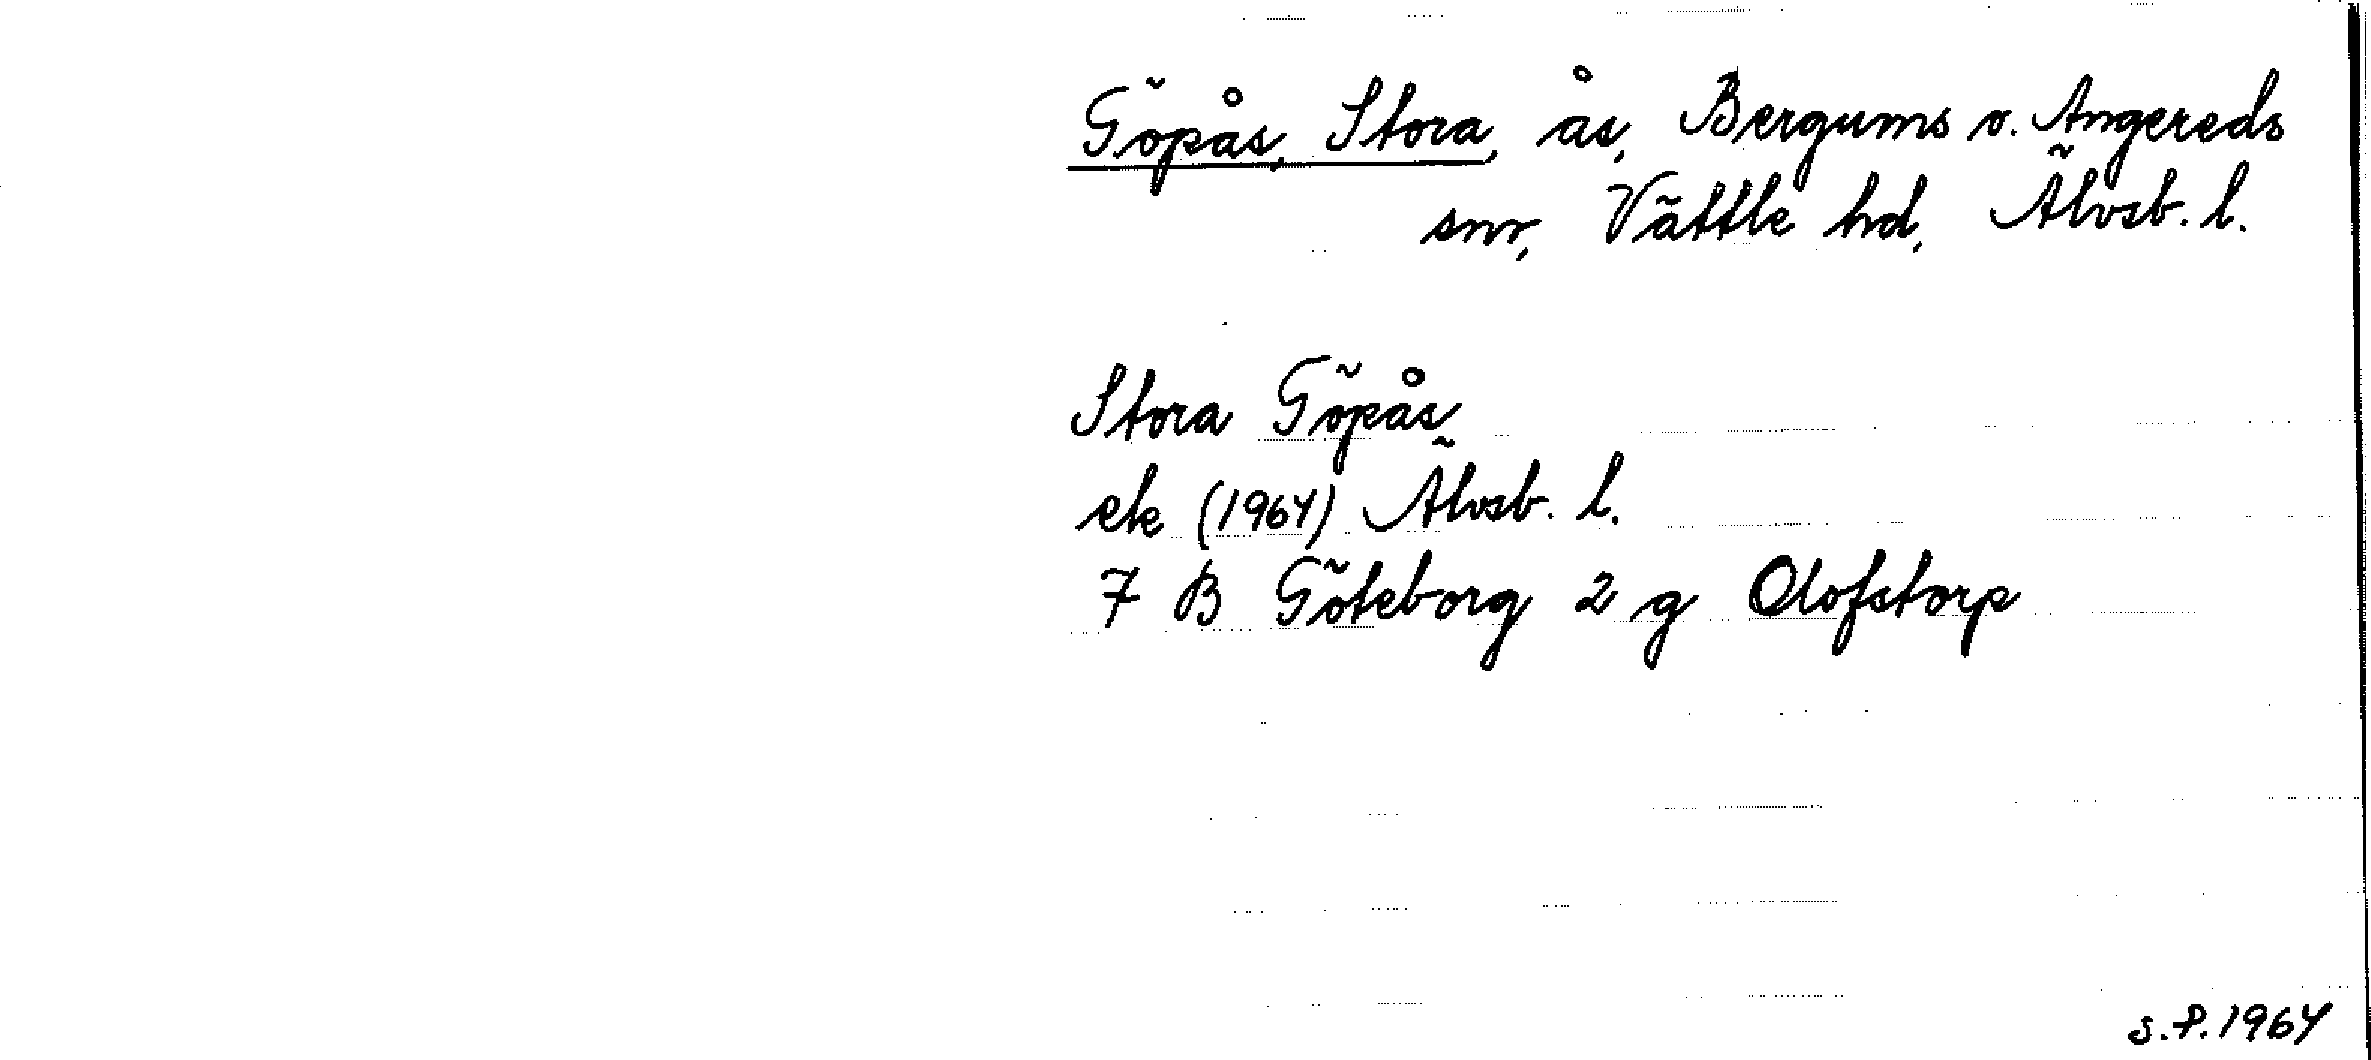 Göpås, Stora, ås, Bergums o. Angereds
snr, Vättle hd, Älvsb. l.
Stora Göpås
ek (1964) Älvsb. l.
7 B Göteborg 2 g Olofstorp
S.P. 1964